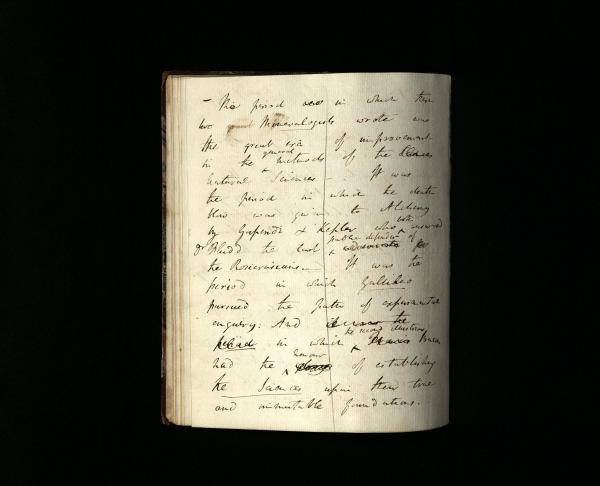 – The period in which these
two great Mineralogists wrote was
the great era of improvement
in the general methods of the
Natural Sciences – It was
the period in which the death
blow was given to Alchemy
by Gassendi & Kepler who both
Dr Fludd the last & public defender of
the Rosicrucians – It was the
period in which Gallileo
pursued the paths of experimental
enquiry: And it was the
period in which the second illustrious Bacon
had the honour of establishing
the Sciences upon their true
and immutable foundations. –